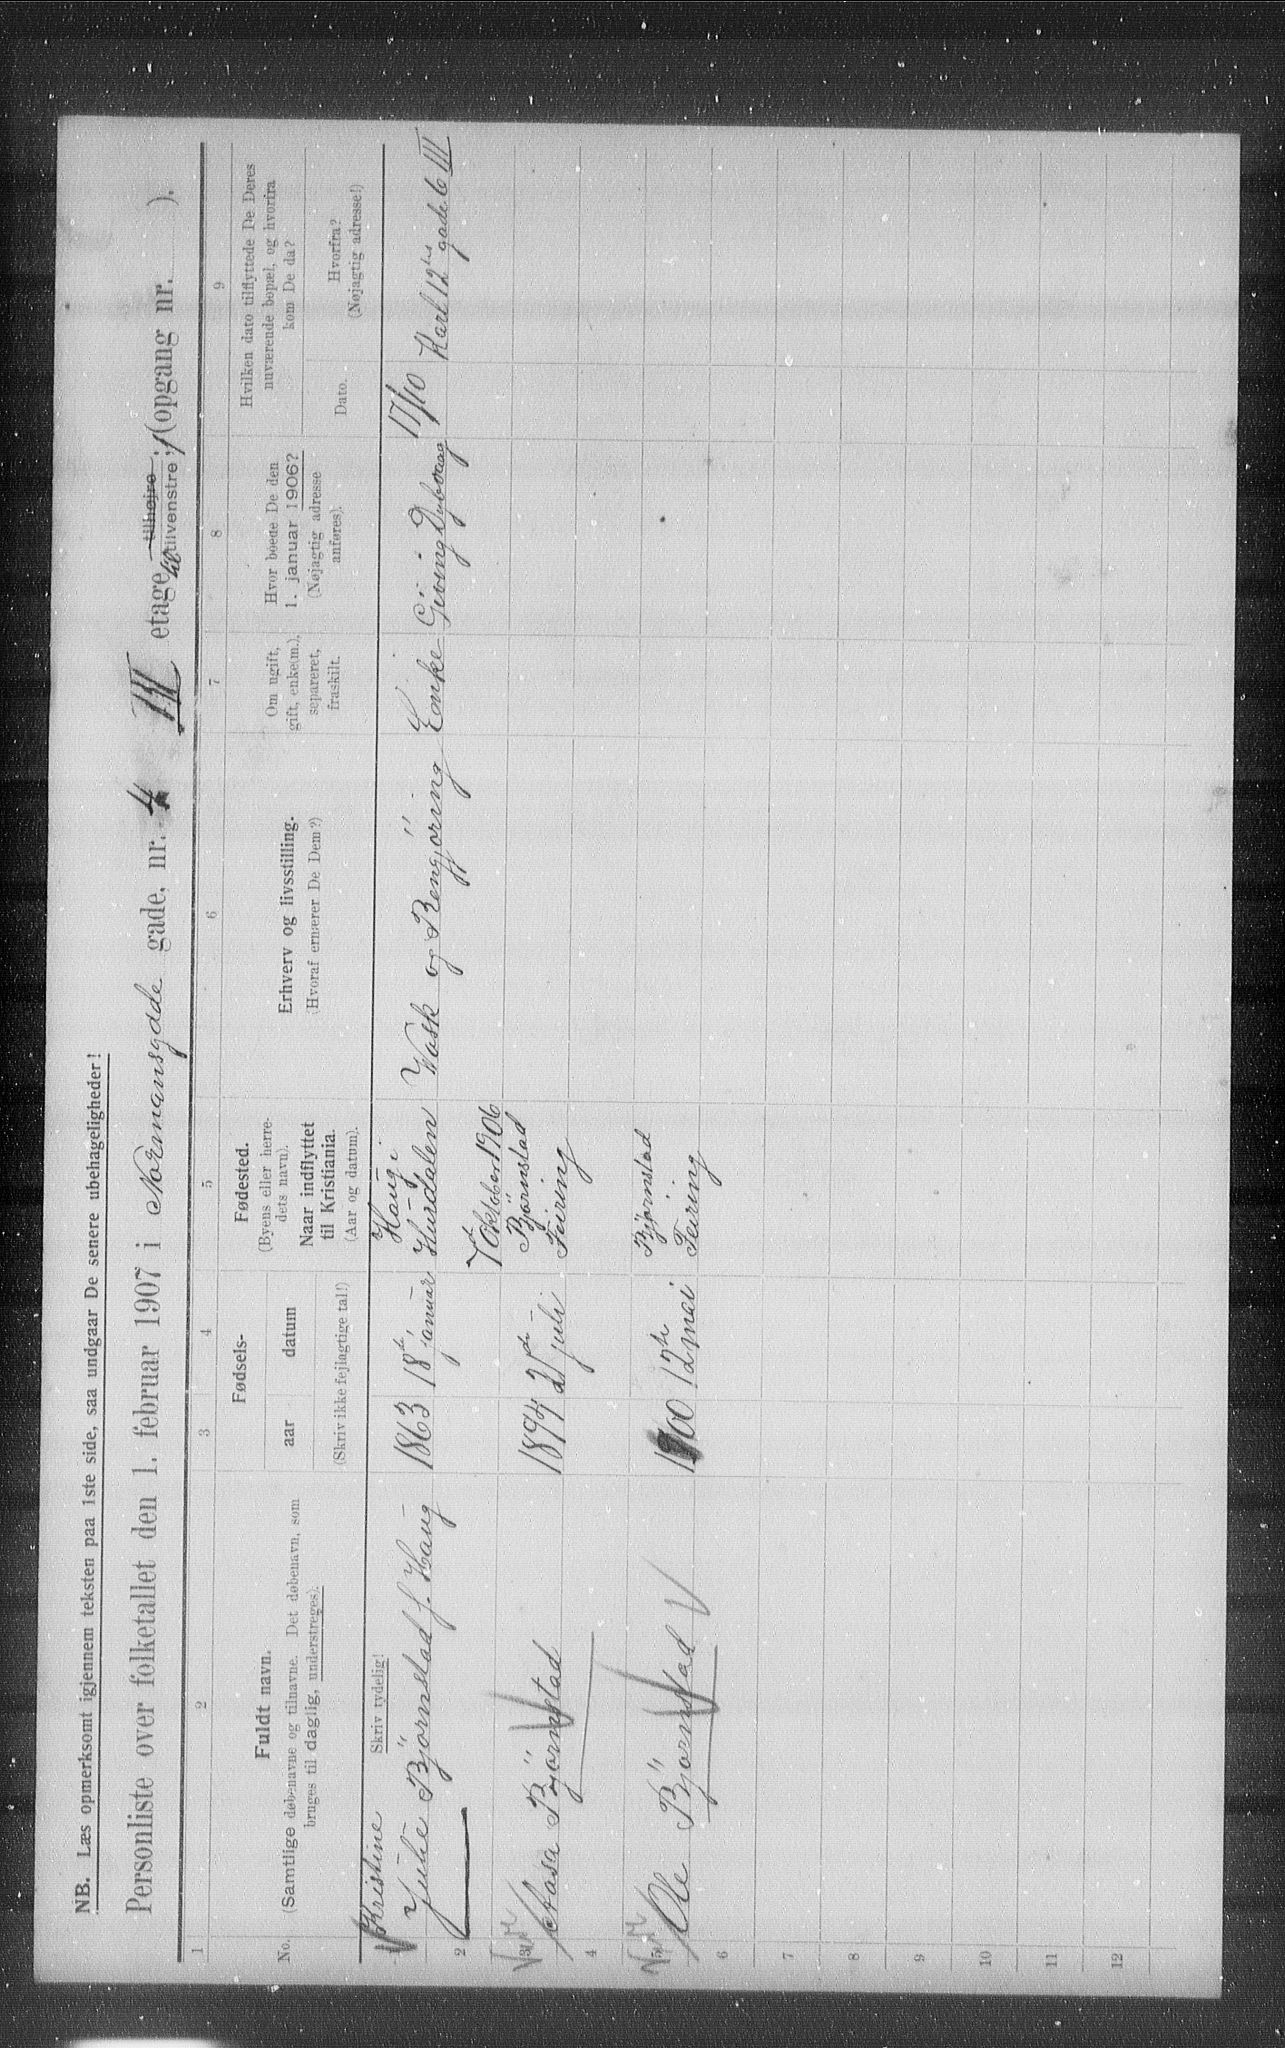 NB. Læs opmerksomt igjennem teksten paa 1ste side, saa undgaar De senere ubehageligheder!
Personliste over folketallet den 1. februar 1907 i Normansgade gade, nr. 4 III etage tilhøjre tilvenstre; (opgang nr. ).
1 2 3 4 5 6 7 8 9
No.
Fuldt navn.
(Samtlige døbenavne og tilnavne. Det døbenavn, som
bruges til daglig, understreges).
Skriv tydelig!
Fødsels-
aar datum
(Skriv ikke fejlagtige tal!)
Fødested.
(Byens eller herre-
dets navn).
Naar indflyttet
til Kristiania.
(Aar og datum).
Erhverv og livsstilling.
(Hvoraf ernærer De Dem?)
Om ugift,
gift, enke(m.),
separeret,
fraskilt.
Hvor boede De den
1. januar 1906?
(Nøjagtig adresse
anføres).
Hvilken dato tilflyttede De Deres
nuværende bopæl, og hvorfra
kom De da?
Dato.
Hvorfra?
(Nøjagtig adresse!)
Kristine Haug i
Julie Björnstad f. Haug 1863 18de januar Hurdalen Vask og Rengjöring Enke 17/10 Karl 12tes gade 6 III
2 7de Oktober 1906
3 Aasa Björnstad 1894 21de juli Björnstad
Feiring
4
5 Ole Björnstad 1900 12te mai Bjørnstad
Feiring
6
7
8
9
10
11
12